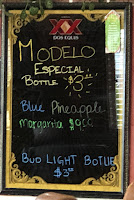 XX
DOS EQUIS
MODELO
ESPECIAL
BOTTLE $3
Blue Pineapple
Margarita
BUD LIGHT BOTTLE